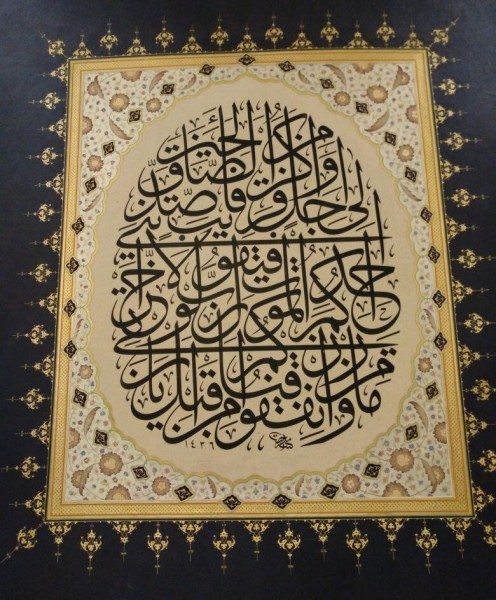 وانفقوا من ما رزقناكم من قبل ان ياتي
احدكم الموت فيقول رب لولا اخرتني
الى اجل قريب فاصدق واكن من الصالحين
١٤٣٦